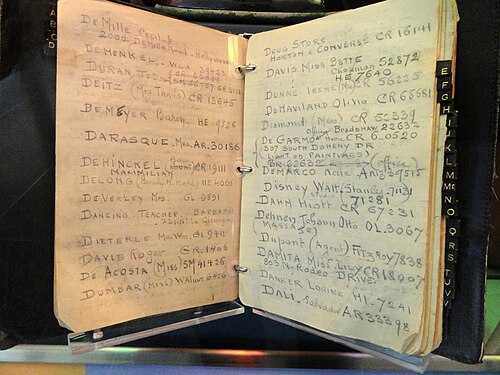 DeMille Cecil B.
2000 DeMille Road. Hollywood
DEHONKEL. W.L.A.
DURAN TEDD
DEITZ (Miss Tanis) CR 13645
DE MEYER Baron. HE
DARASQUE. Mrs. AR. 30186
DEHINCKEL CR 13111
MAXIMILIAN
DELONG HE 4061
DE VERLEY Mrs. GL 9891
DANCING TEACHER. BARBARA
DIETERLE Mr. Wm. GL 9411
DAVID Roger GR. 1406
DE ACOSTA (Miss) SM 41426
DUMBAR (Miss) Walnut 6406
DRUG STORE
HORTON & CONVERSE CR 15141
DAVIS MISS Bette 52872
Chapman
HE 7640
DUNNE IRENE (Ma) CR 56225
DEHAVILAND Olivia CR 65581
Desmond (Miss) CR 52339
Office Bradshaw 22632
DE GARMO Home CR 60520
307 SOUTH DOHENY DR
(LIGHT ON PAINTINGS)
(office)
DEMARCO Rene AR. 39515
Disney Walt. Stanley. 71131
studio 71281
DAHN Hiatt CR 67231
Dehnen Johann Otto OL. 3067
(MASSAGE)
Dupont (Agent) Fitzroy 7838
DAMITA MISS Lily CR 18007
803 N. RODEO DRIVE
DANKER LORINE HI. 7241
DALI. Salvador AR 33398
E
F
G
H
I
J
K
L
M
Mc
N
O
Q.R.
S
T
U.V.